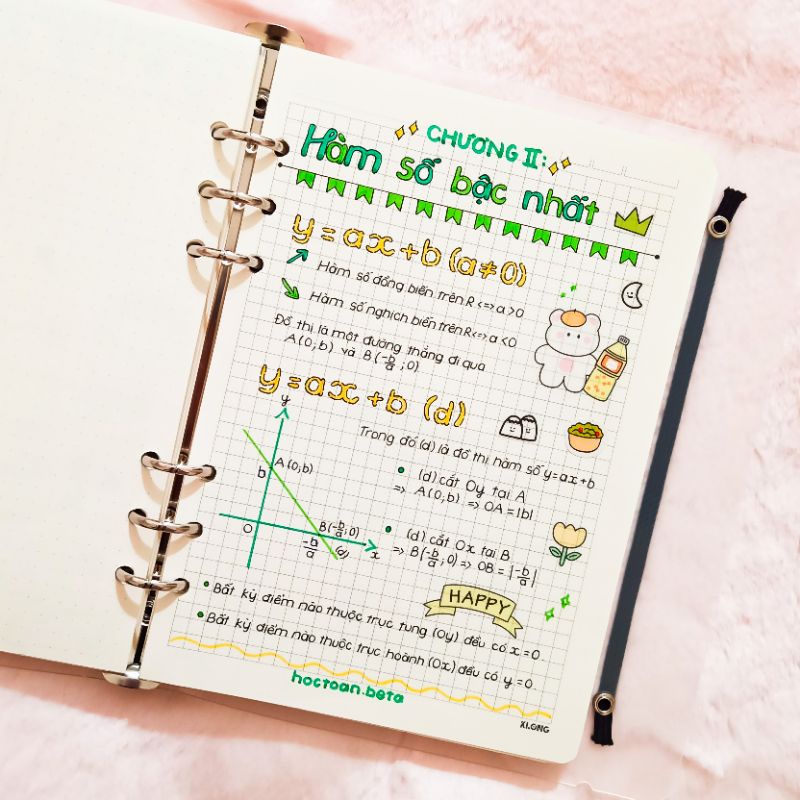 CHƯƠNG II:
Hàm số bậc nhất
y = ax + b (a ≠ 0)
Hàm số đồng biến trên R <=> a > 0
Hàm số nghịch biến trên R <=> a < 0
Đồ thị là một đường thẳng đi qua
A(0; b) và B(-b/a ; 0)
y = ax + b (d)
Trong đó (d) là đồ thị hàm số y = ax + b
y
A(0; b)
b
O
B(-b/a ; 0)
-b/a
(d)
x
(d) cắt Oy tại A
=> A(0; b) => OA = |b|
(d) cắt Ox tại B
=> B(-b/a ; 0) => OB = |-b/a|
HAPPY
Bất kỳ điểm nào thuộc trục tung (Oy) đều có x = 0.
Bất kỳ điểm nào thuộc trục hoành (Ox) đều có y = 0.
hoctoan.beta
XI.ONG